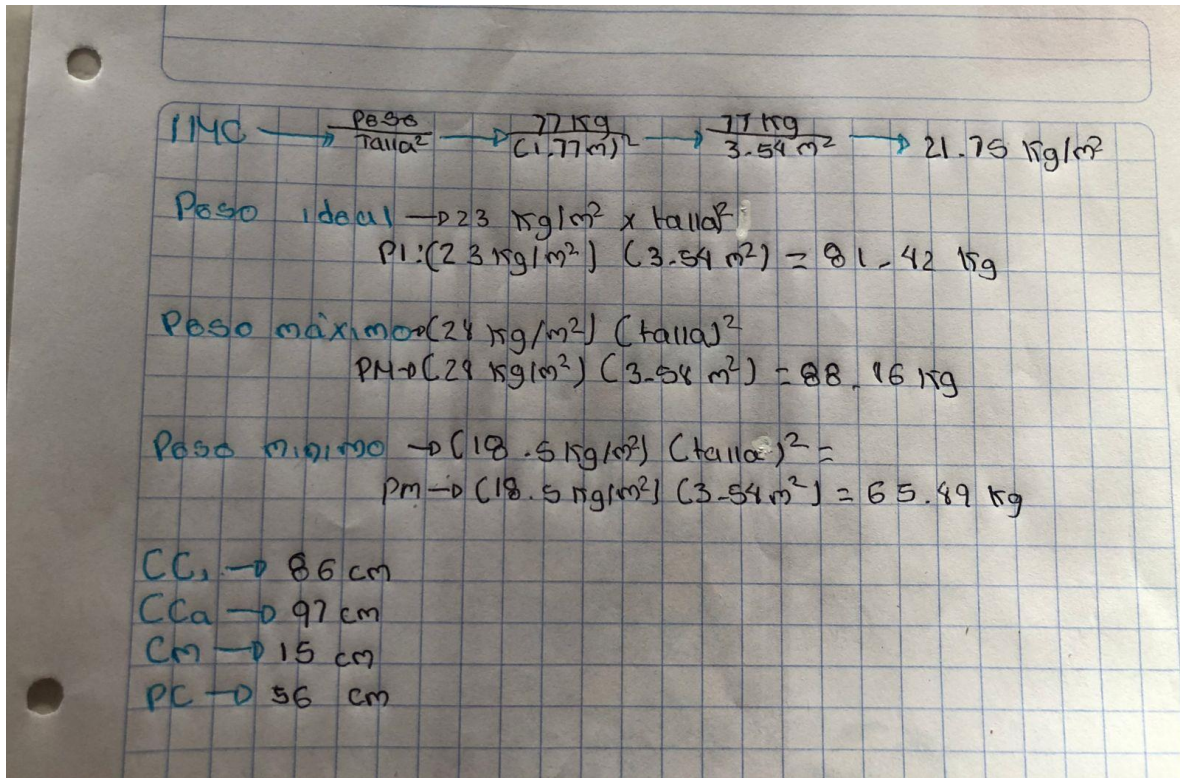 IMC → Peso / Talla² → 77 Kg / (1.77m)² → 77 Kg / 3.54 m² → 21.75 Kg/m²
Peso ideal → 23 Kg/m² x talla²
PI: (23 Kg/m²) (3.54 m²) = 81.42 Kg
Peso máximo → (24 Kg/m²) (talla)²
PM → (24 Kg/m²) (3.54 m²) = 88.16 Kg
Peso minimo → (18.5 Kg/m²) (talla)² =
Pm → (18.5 Kg/m²) (3.54 m²) = 65.49 Kg
CC → 86 cm
CCa → 97 cm
Cm → 15 cm
PC → 56 cm